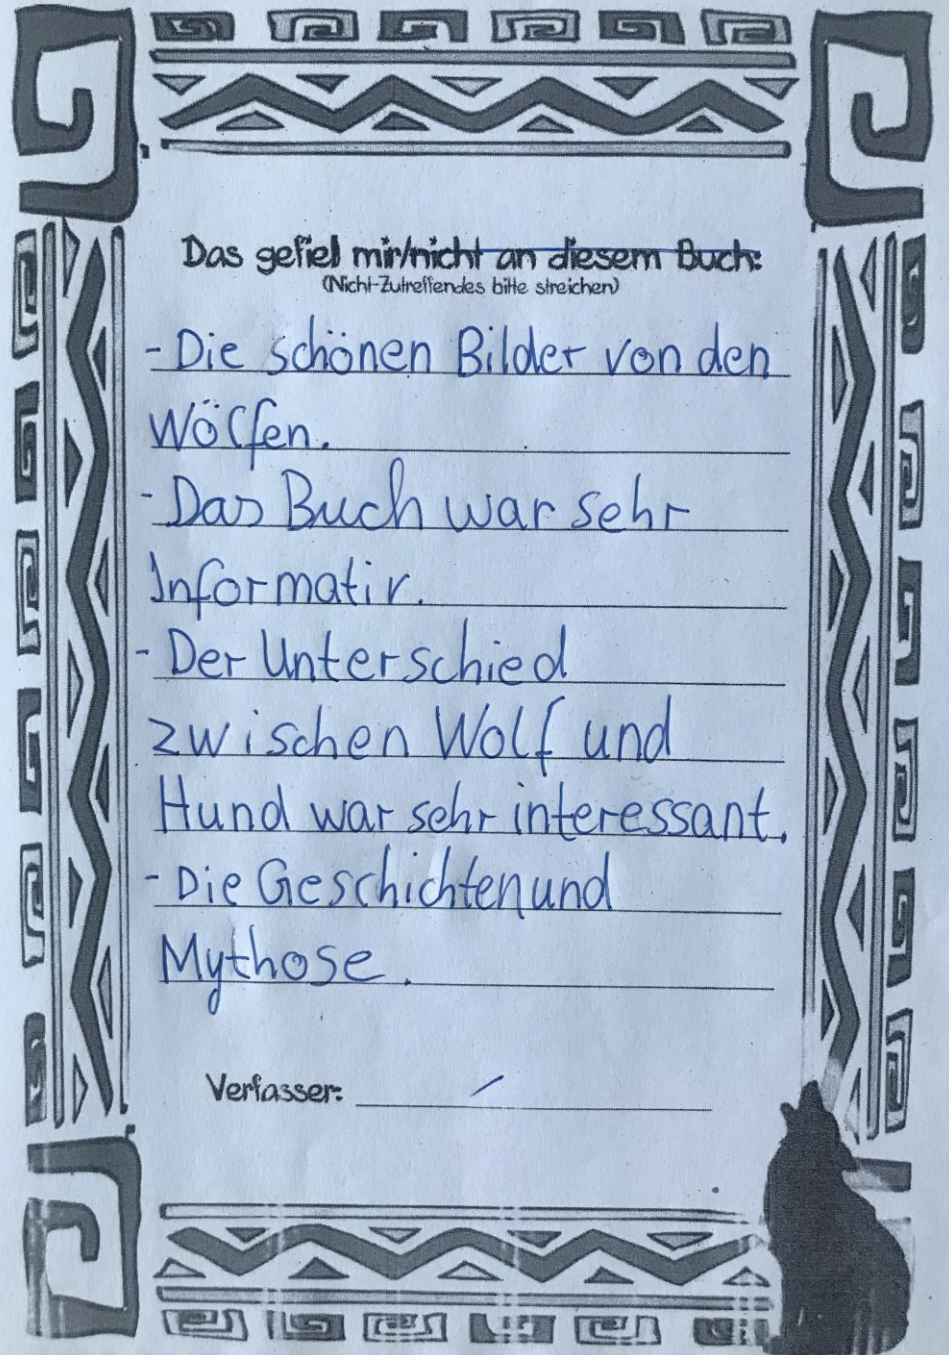 Das gefiel mir/nicht an diesem Buch:
(Nicht-Zutreffendes bitte streichen)
- Die schönen Bilder von den
Wölfen.
- Das Buch war sehr
Informativ.
- Der Unterschied
zwischen Wolf und
Hund war sehr interessant.
- Die Geschichten und
Mythose.
Verfasser: /